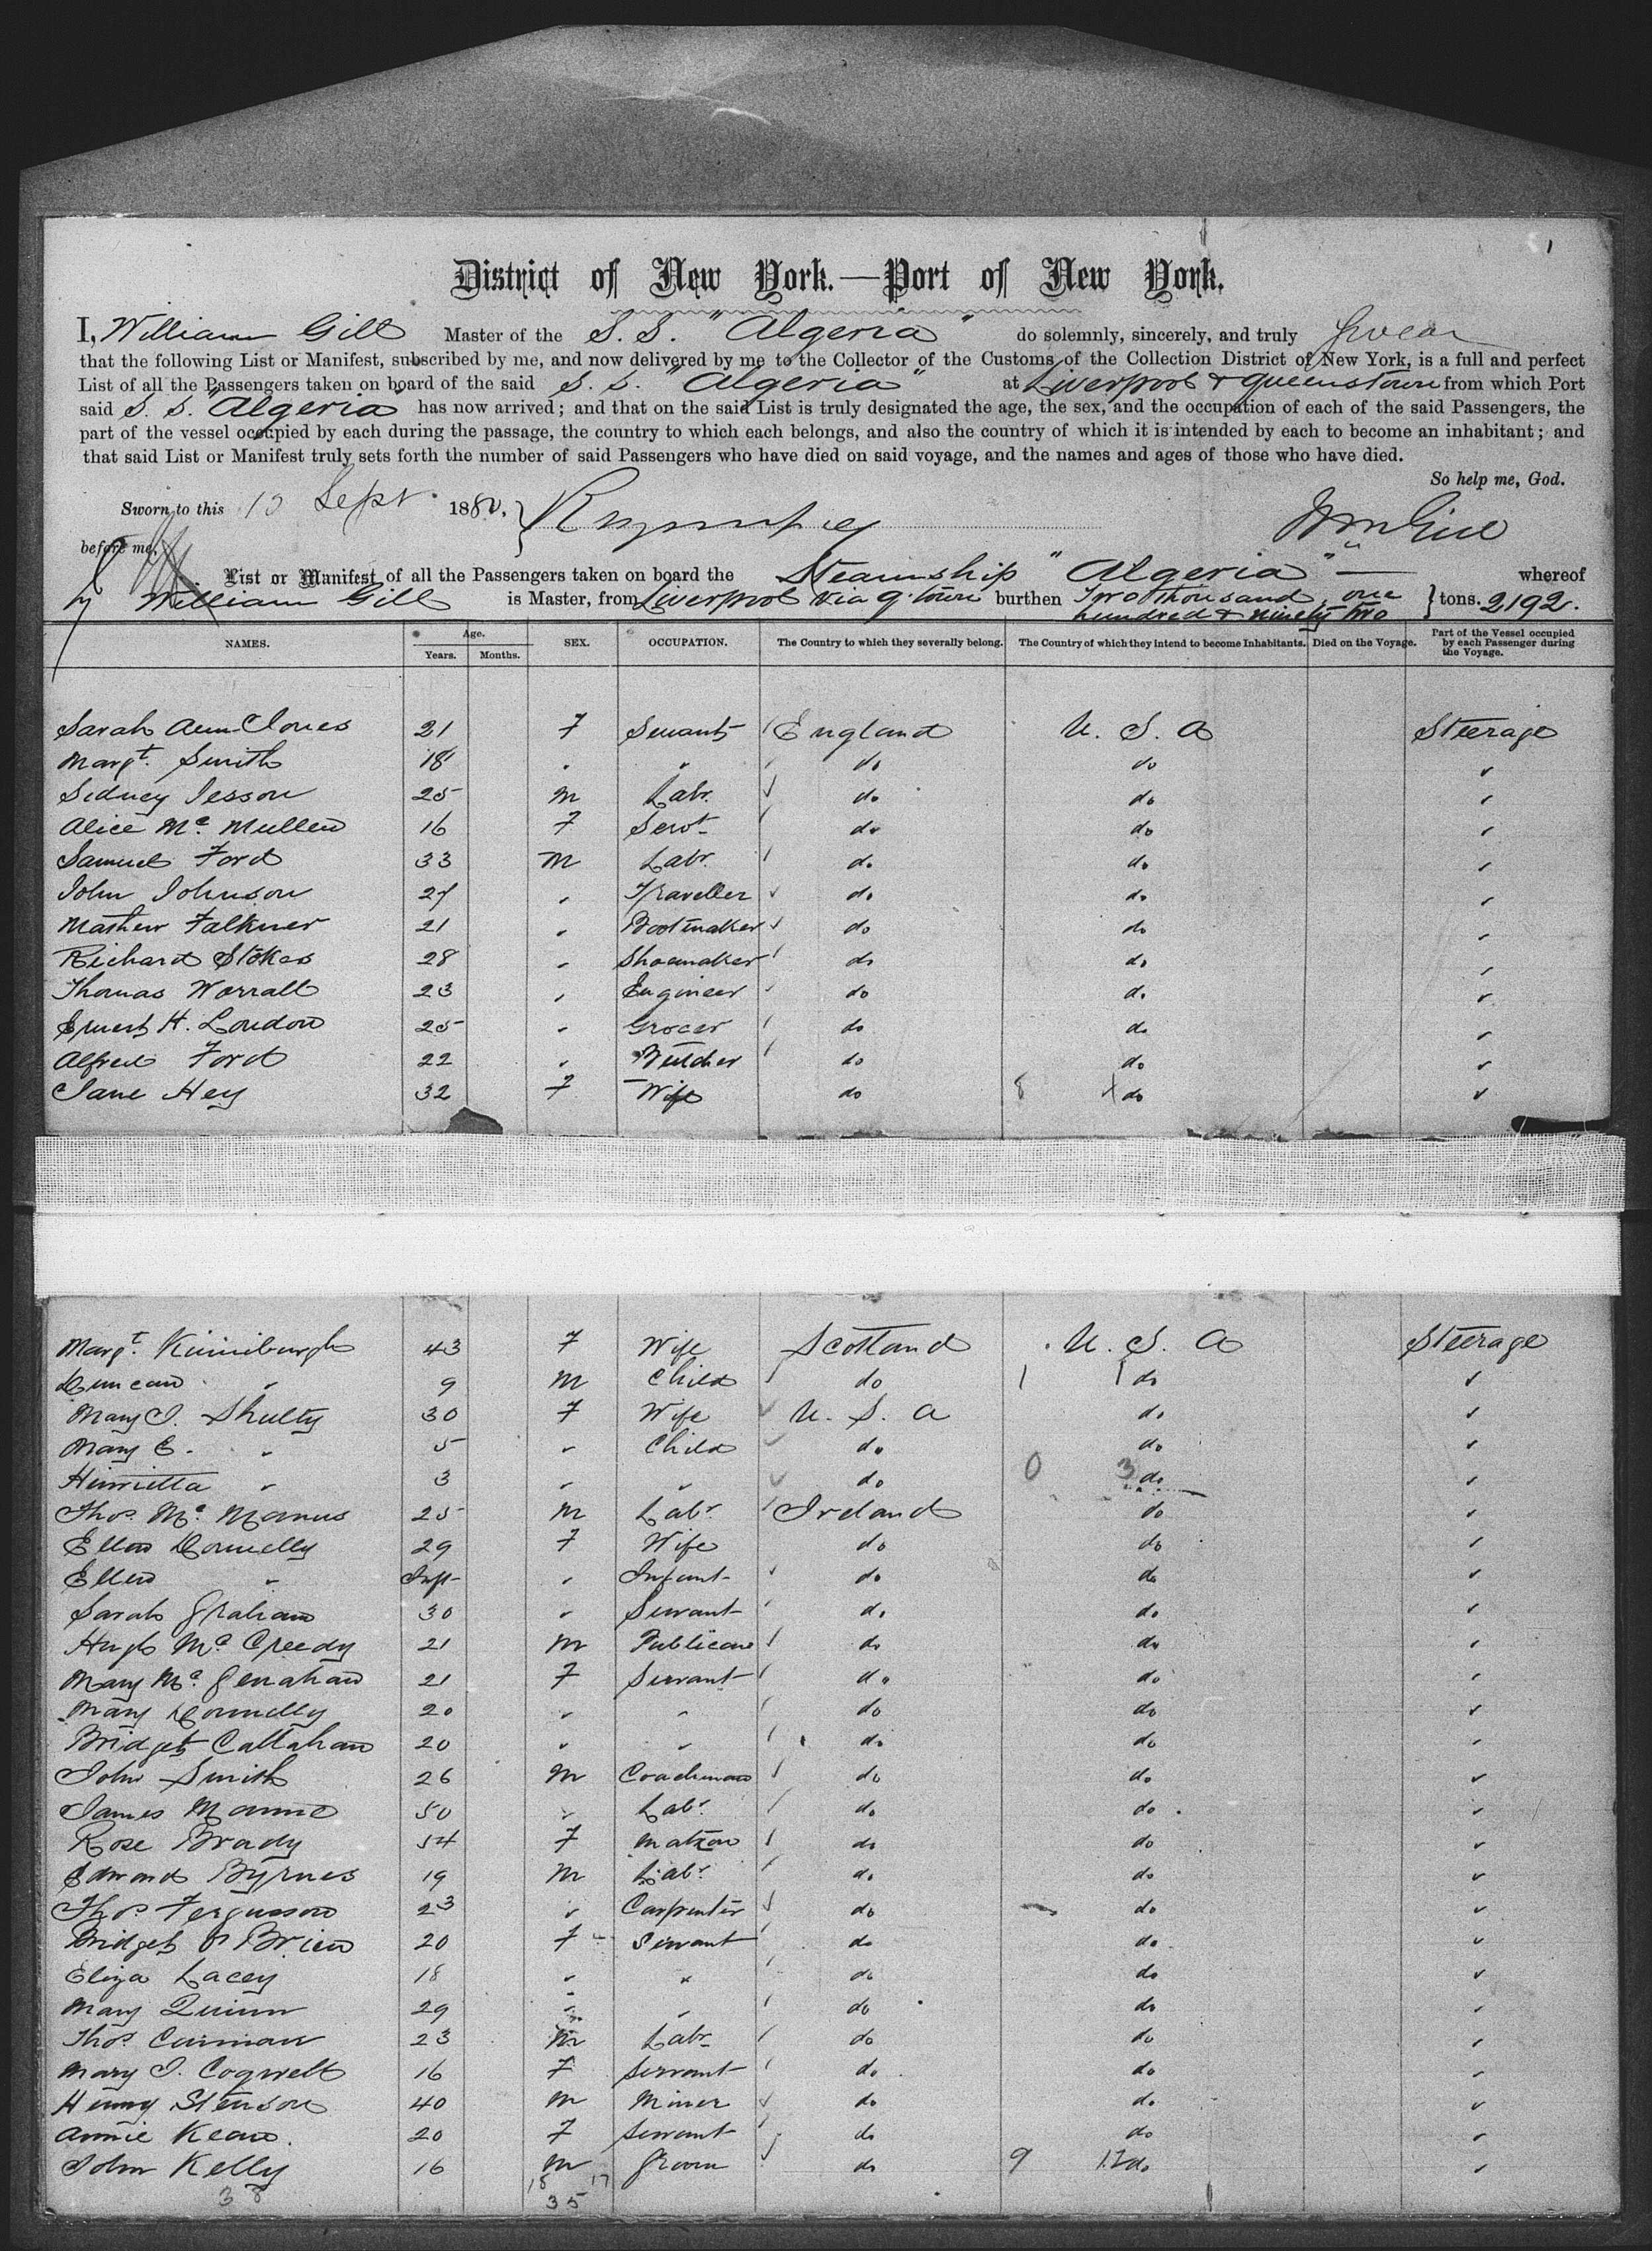 1
District of New York.—Port of New York.
I, William Gill Master of the S. S. "Algeria" do solemnly, sincerely, and truly swear
that the following List or Manifest, subscribed by me, and now delivered by me to the Collector of the Customs of the Collection District of New York, is a full and perfect
List of all the Passengers taken on board of the said S. S. "Algeria" at Liverpool & Queenstown from which Port
said S. S. "Algeria" has now arrived; and that on the said List is truly designated the age, the sex, and the occupation of each of the said Passengers, the
part of the vessel occupied by each during the passage, the country to which each belongs, and also the country of which it is intended by each to become an inhabitant; and
that said List or Manifest truly sets forth the number of said Passengers who have died on said voyage, and the names and ages of those who have died.
So help me, God.
Sworn to this Sept 1880, Wm Gill
before me,
List or Manifest of all the Passengers taken on board the Steamship "Algeria" whereof
William Gill is Master, from Liverpool via Q'town burthen Two thousand, one hundred & ninety two tons. 2192.
NAMES. Age. Years. Months. SEX. OCCUPATION. The Country to which they severally belong. The Country of which they intend to become Inhabitants. Died on the Voyage. Part of the Vessel occupied by each Passenger during the Voyage.
Sarah Ann Jones 21 F Servant England U. S. A Steerage
Margt. Smith 18 " " do do "
Sidney Jesson 25 M Labr. do do "
Alice Mc Mullen 16 F Servt do do "
Samuel Ford 33 M Labr. do do "
John Johnson 27 " Traveller do do "
Mathew Falkner 21 " Bootmaker do do "
Richard Stokes 28 " Shoemaker do do "
Thomas Worrall 23 " Engineer do do "
Ernest H. London 25 " Grocer do do "
Alfred Ford 22 " Butcher do do "
Jane Hey 32 F Wife do 8 do "
Margt. Kinniburgh 43 F Wife Scotland U. S. A Steerage
Duncan " 9 M Child do 1 1 do "
Mary J. Shulty 30 F Wife U. S. A do "
Mary E. " 5 " Child do do "
Henrietta " 3 " " do 0 3 do "
Thos. Mc Manus 25 M Labr Ireland do "
Ellen Donnelly 29 F Wife do do "
Ellen " Inft " Infant do do "
Sarah Graham 30 " Servant do do "
Hugh Mc Creedy 21 M Publican do do "
Mary Mc Genahan 21 F Servant do do "
Mary Donnelly 20 " " do do "
Bridget Callahan 20 " " do do "
John Smith 26 M Coachman do do "
James 50 " Labr. do do "
Rose Brady 54 F Matron do do "
Edmond Byrnes 19 M Labr do do "
Thos. Fergusson 23 " Carpenter do do "
Bridget O Brien 20 F Servant do do "
Eliza Lacey 18 " " do do "
Mary Quinn 29 " " do do "
Thos. 23 M Labr do do "
Mary J. Cogwell 16 F Servant do do "
Henry Stenson 40 M Miner do do "
Annie Kean. 20 F Servant do do "
John Kelly 16 M Groom do 9 12 do "
38 18 17
35